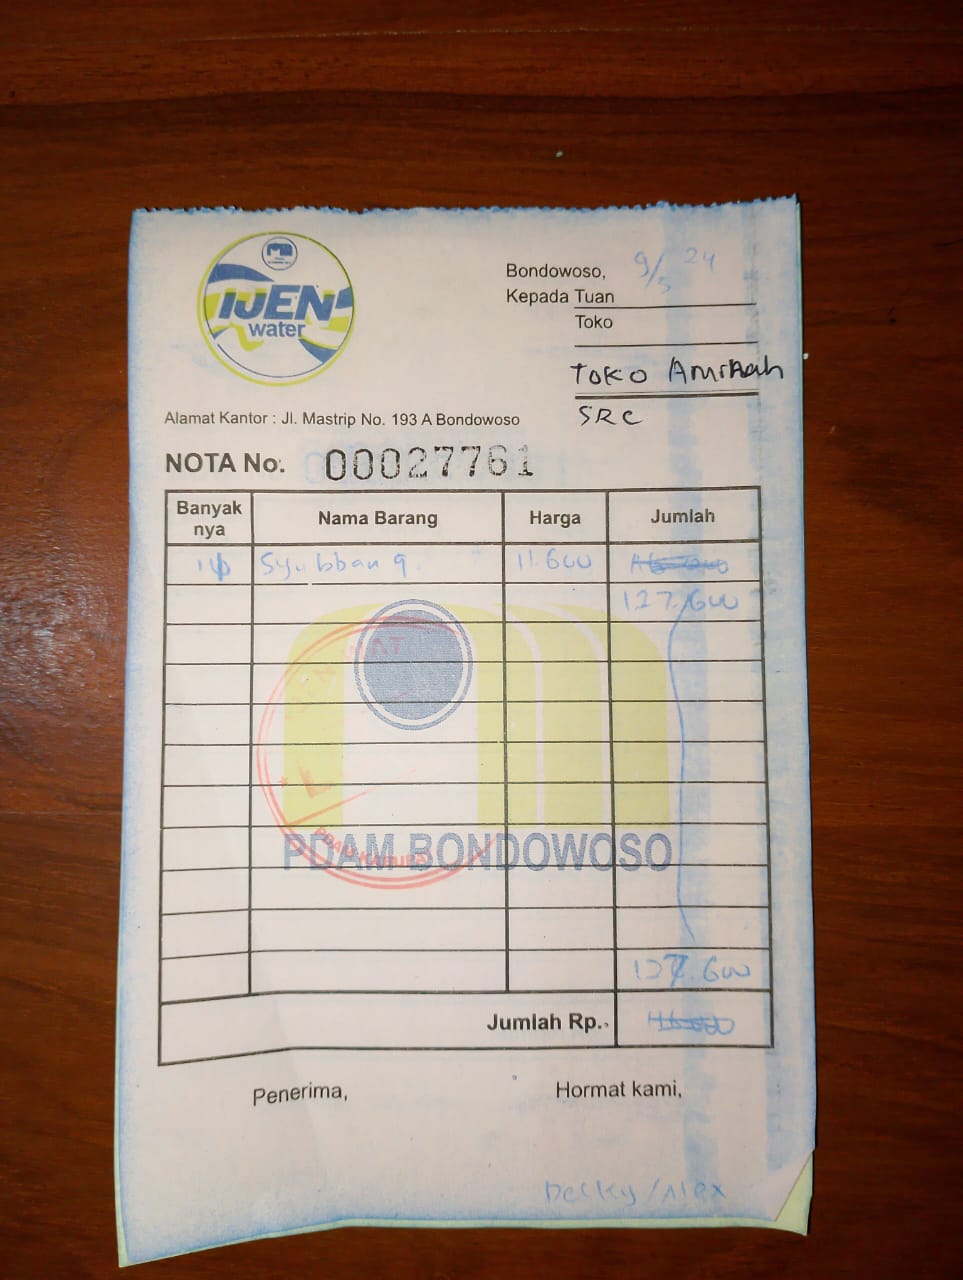 IJEN
water
Bondowoso, 9/5 24
Kepada Tuan
Toko
TOKO
SRC
Alamat Kantor : Jl. Mastrip No. 193 A Bondowoso
NOTA No. 00027761
Banyak nya Nama Barang Harga Jumlah
Syubban 9 11.600
127.600
PDAM BONDOWOSO
127.600
Jumlah Rp.
Penerima, Hormat kami,
/Alex